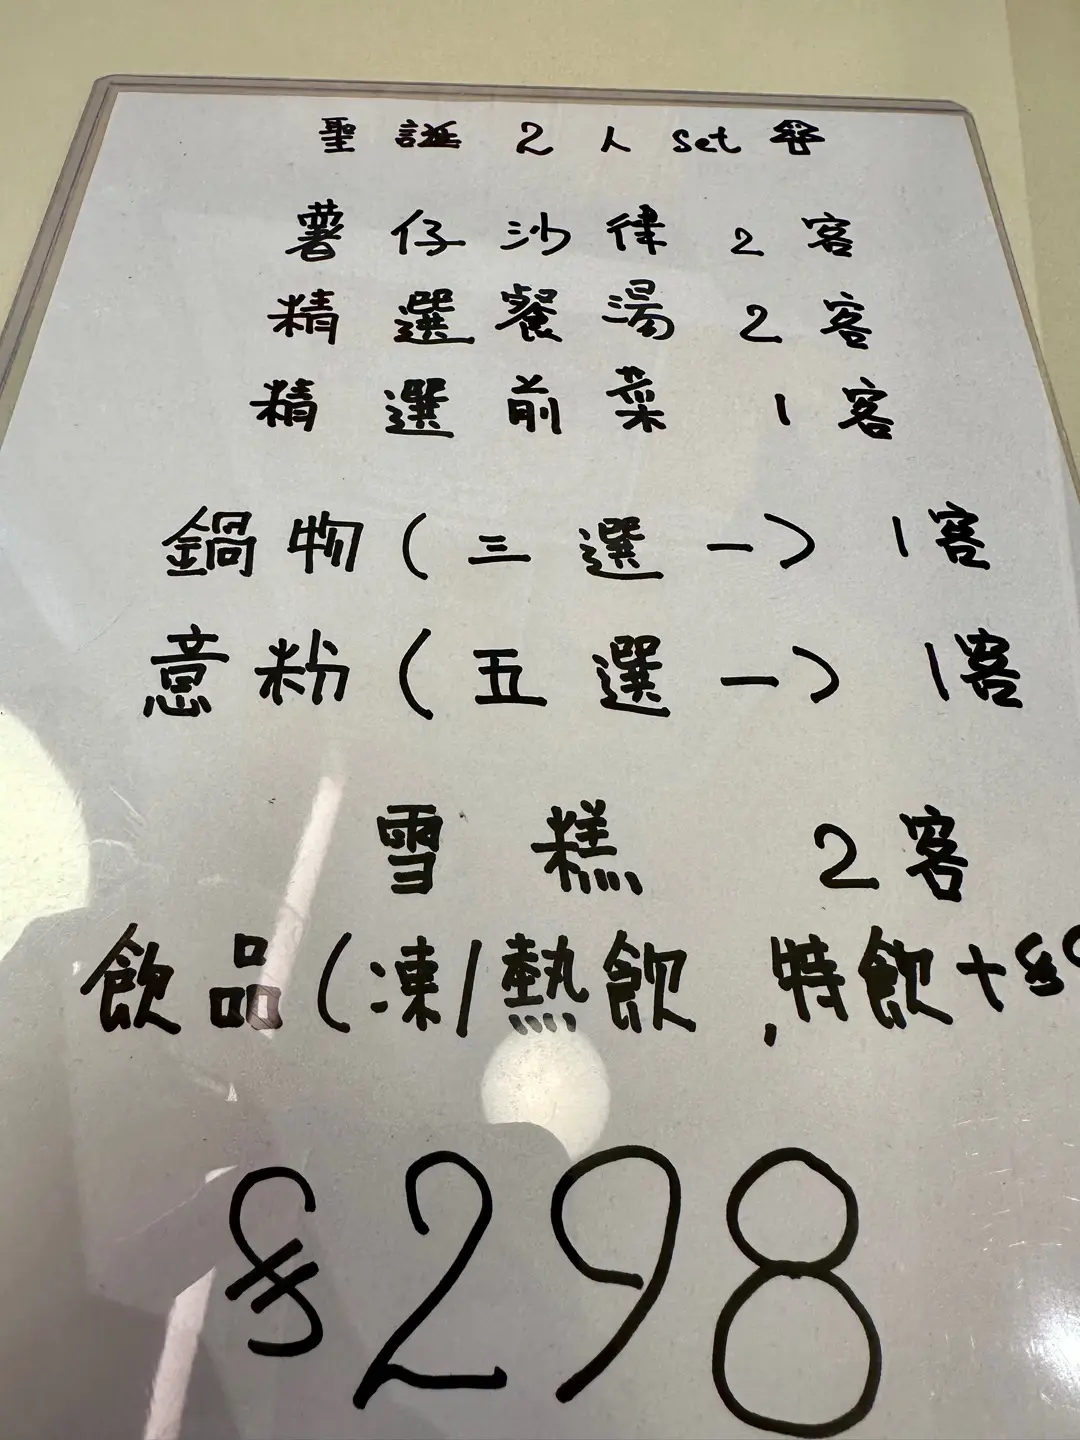 聖誕 2人 set 餐
薯仔沙律 2客
精選餐湯 2客
精選前菜 1客
鍋物(三選一) 1客
意粉(五選一) 1客
雪糕 2客
飲品(凍/熱飲,特飲+$
$298